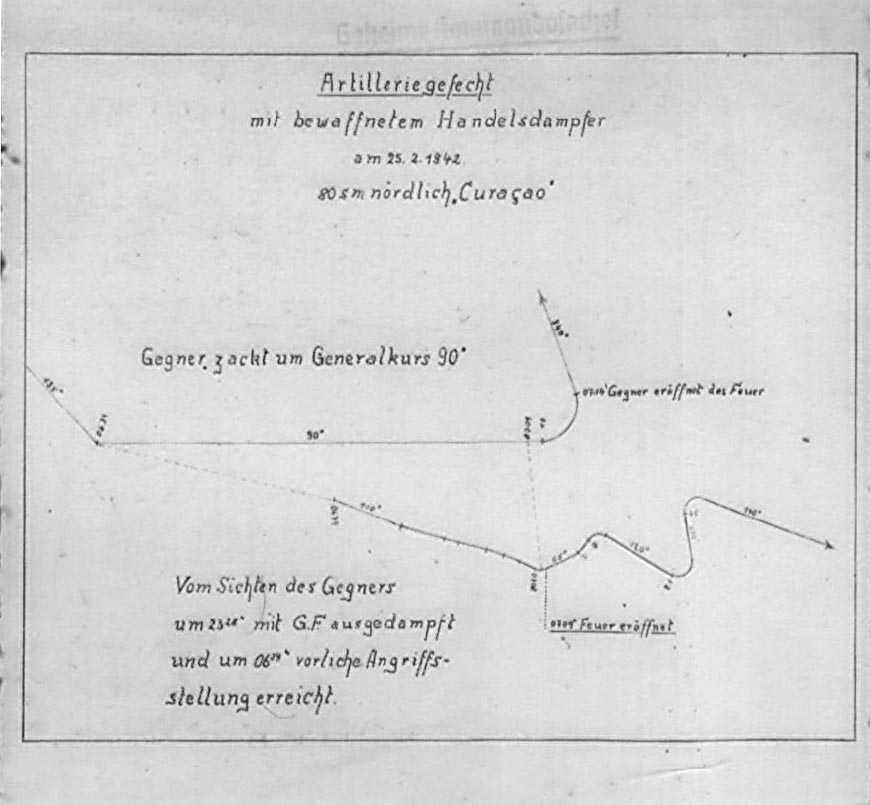 Geheime Kommandosache!
Artilleriegefecht
mit bewaffnetem Handelsdampfer
am 25. 2. 1942.
80 sm nördlich „Curaçao"
340°
Gegner zackt um Generalkurs 90°
0714' Gegner eröffnet das Feuer
135°
90°
110°
120°
110°
Vom Sichten des Gegners
um 2328' mit G.F. ausgedampft
0709' Feuer eröffnet
und um 0639' vorliche Angriffs-
stellung erreicht.